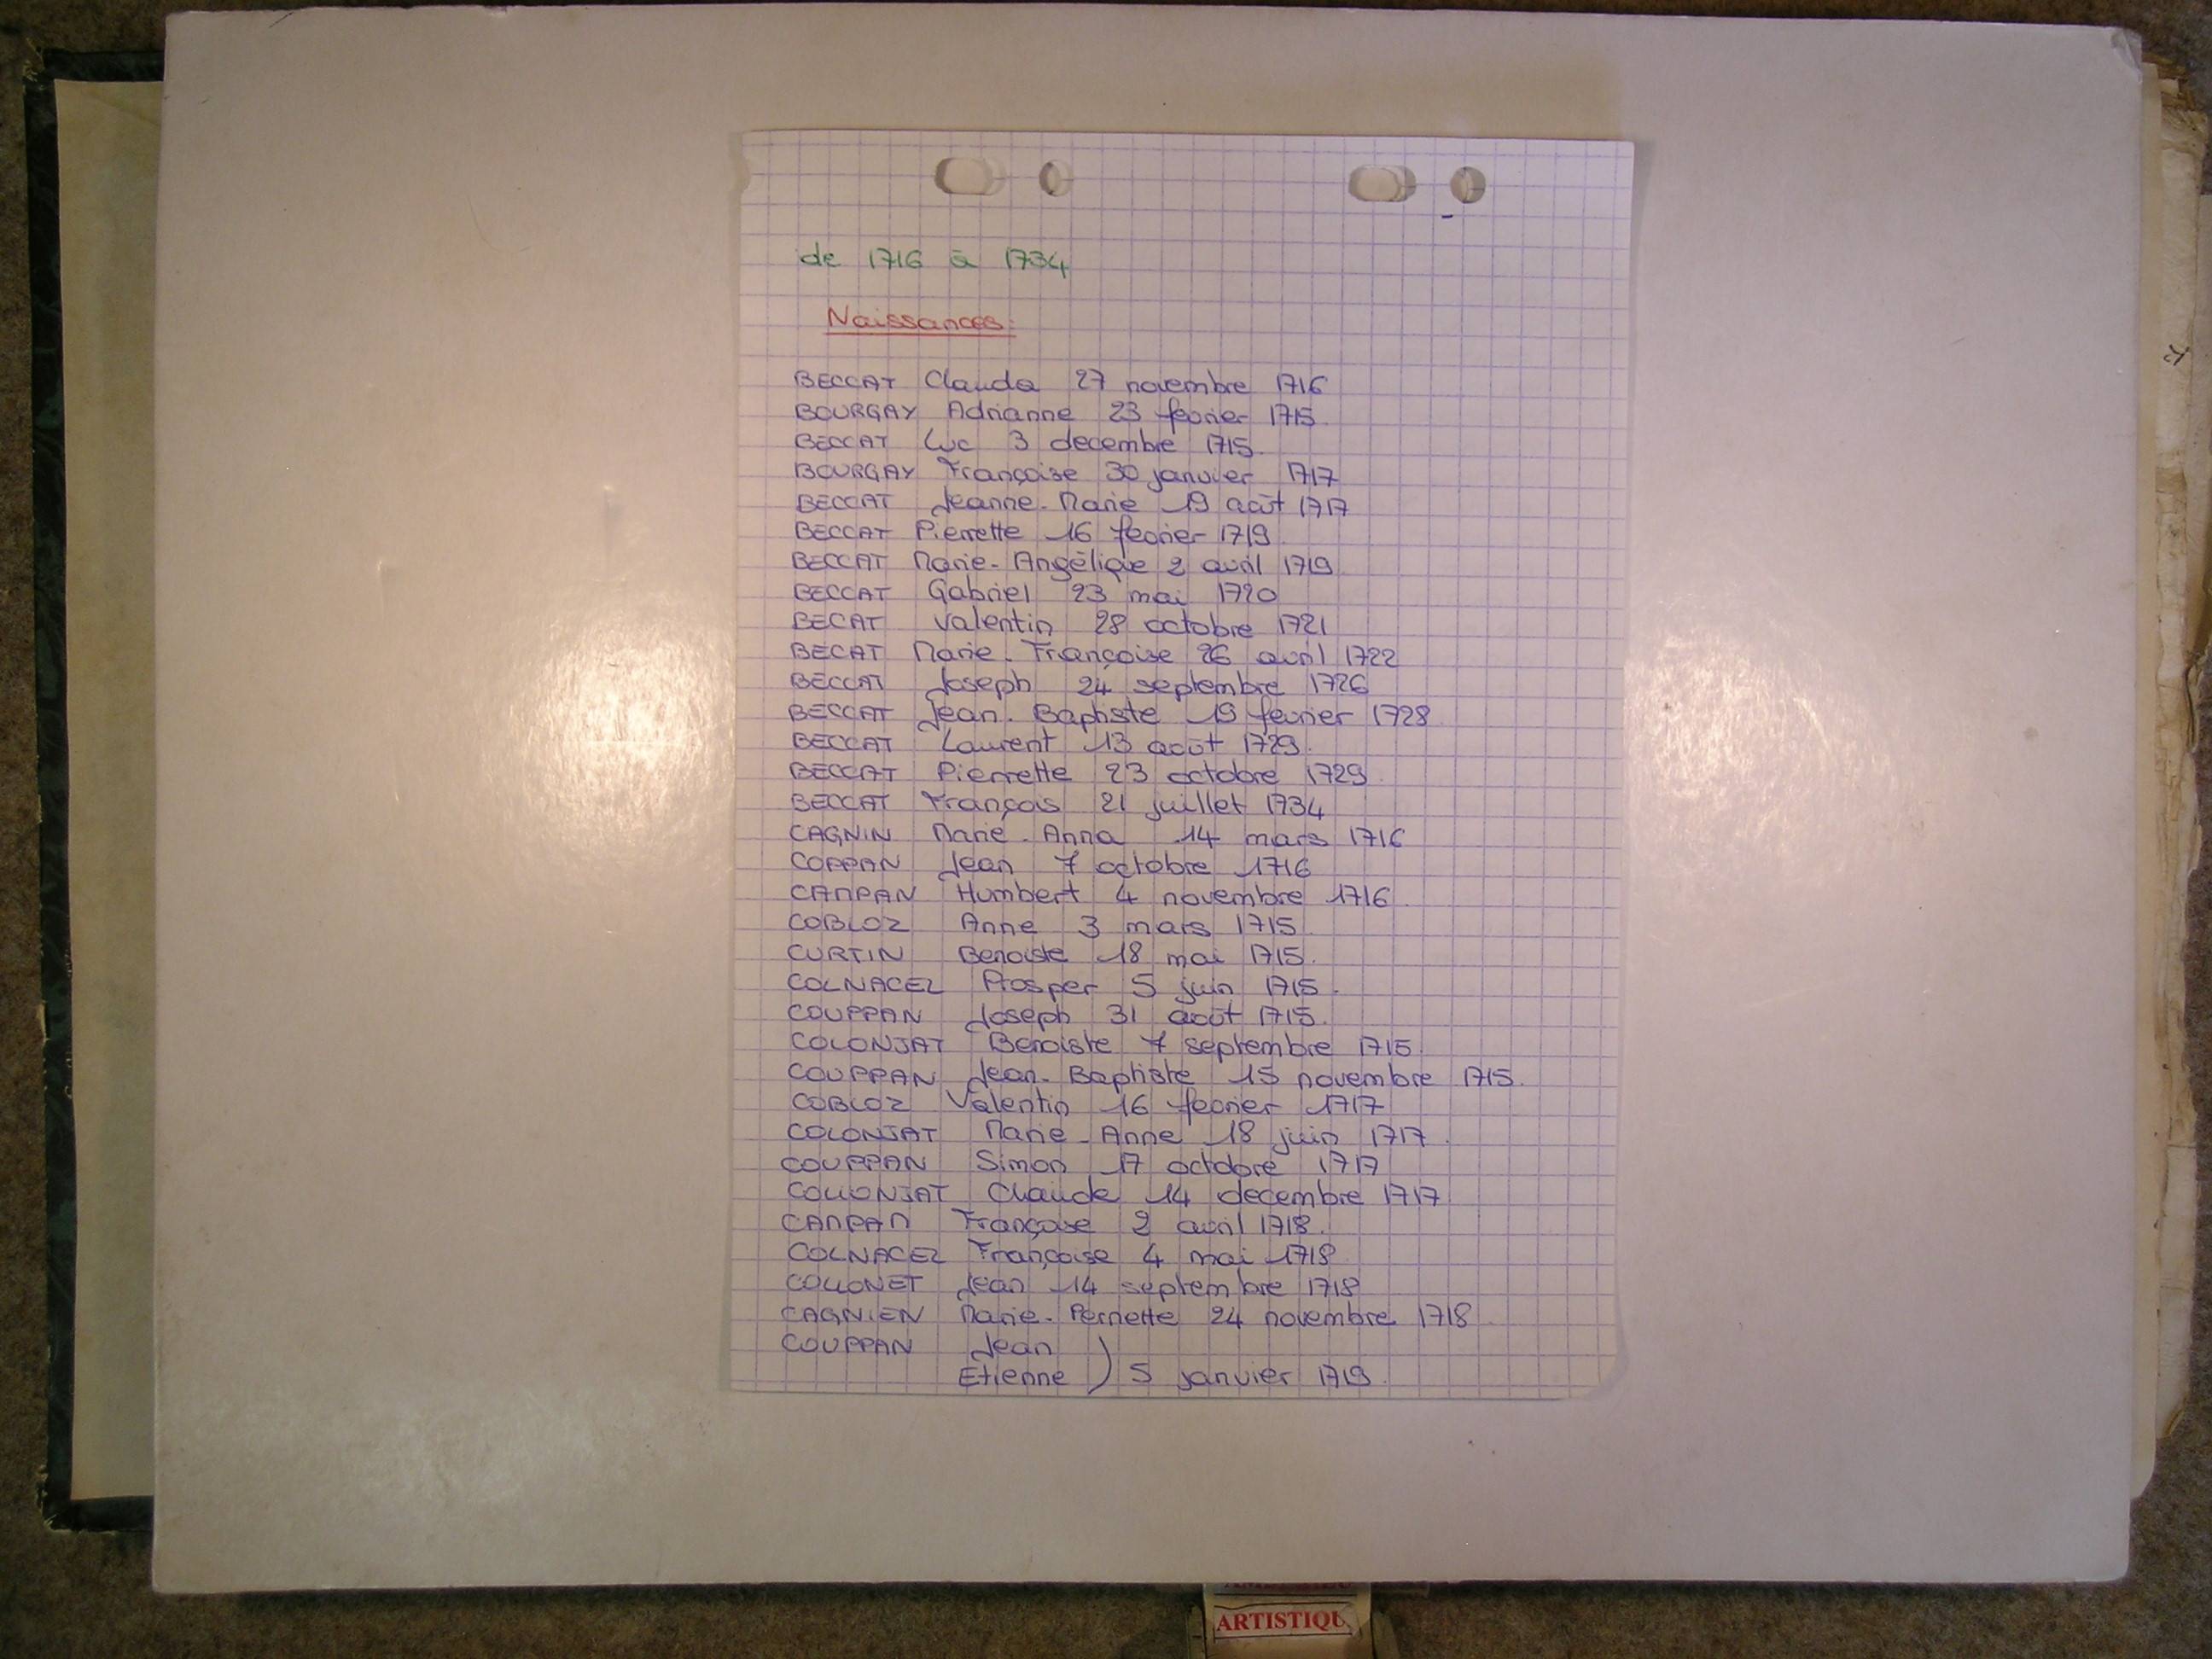 de 1716 à 1734
Naissances:
BECCAT Claude 27 novembre 1716
BOURGAY Adrianne 23 février 1715.
BECCAT Luc 3 decembre 1715.
BOURGAY Françoise 30 janvier 1717
BECCAT Jeanne-Marie 19 août 1717
BECCAT Pierrette 16 février 1719.
BECCAT Marie-Angélique 2 avril 1719.
BECCAT Gabriel 23 mai 1720
BECAT Valentin 28 octobre 1721
BECAT Marie-Françoise 26 avril 1722
BECCAT Joseph 24 septembre 1726
BECCAT Jean-Baptiste 19 février 1728
BECCAT Laurent 13 août 1729.
BECCAT Pierrette 23 octobre 1729.
BECCAT François 21 juillet 1734
CAGNIN Marie-Anna 14 mars 1716
COPPAN Jean 7 octobre 1716
CAMPAN Humbert 4 novembre 1716.
COBLOZ Anne 3 mars 1715.
CURTIN Benoiste 18 mai 1715.
COLNACEZ Prosper 5 juin 1715.
COUPPAN Joseph 31 août 1715.
COLONJAT Benoiste 7 septembre 1715.
COUPPAN Jean-Baptiste 15 novembre 1715.
COBLOZ Valentin 16 février 1717
COLONJAT Marie-Anne 18 juin 1717.
COUPPAN Simon 17 octobre 1717
COLLONJAT Claude 14 decembre 1717
CAMPAN Françoise 2 avril 1718.
COLNACEZ Françoise 4 mai 1718.
COLLONET Jean 14 septembre 1718
CAGNIEN Marie-Pernette 24 novembre 1718.
COUPPAN Jean
Etienne ) 5 janvier 1719.
ARTISTIQU